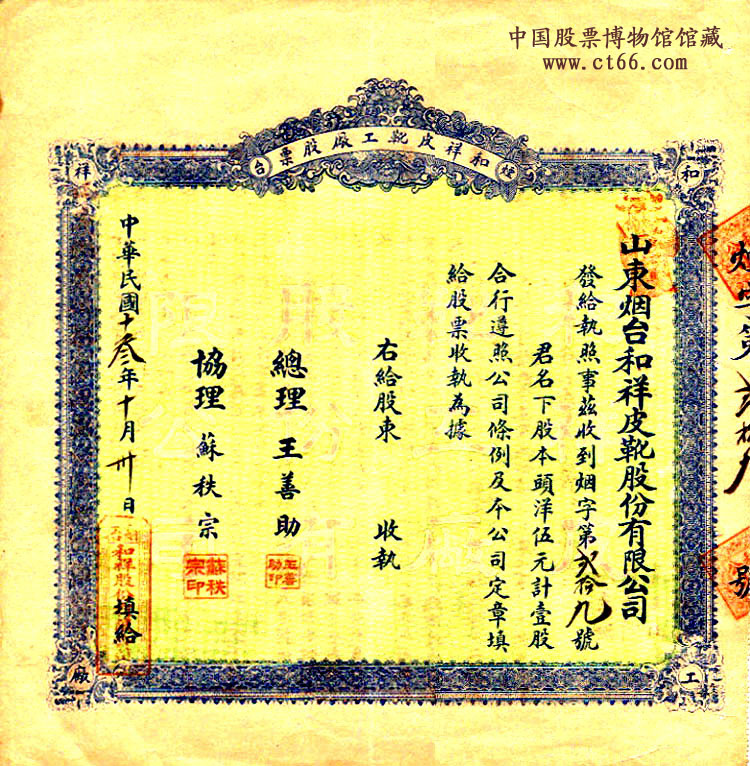 中国股票博物馆馆藏
www.ct66.com
烟和祥皮靴工厰股票台
和
祥
工
厰
山東烟台和祥皮靴股份有限公司
發給執照事茲收到烟字第弍拾九號
君名下股本頭洋伍元計壹股
合行遵照公司條例及本公司定章填
給股票收執為據
右給股東 收執
總理 王善助
王善助印
協理 蘇秩宗
蘇秩宗印
中華民國十叁年十月卅日
和祥股份
填給
號